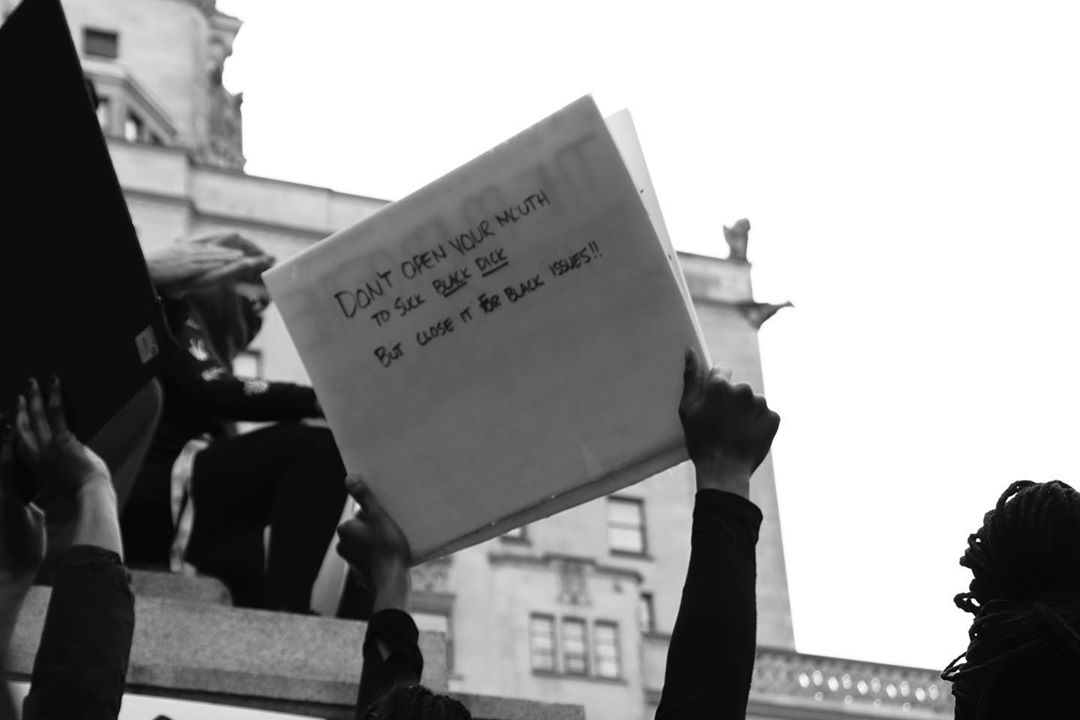 DON'T OPEN YOUR MOUTH
TO SUCK BLACK DICK
BUT CLOSE IT FOR BLACK ISSUES!!